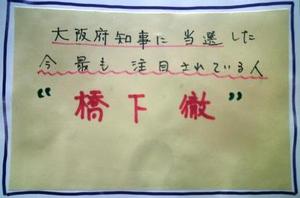 大阪府知事に当選した
今最も注目されている人
“橋下徹”